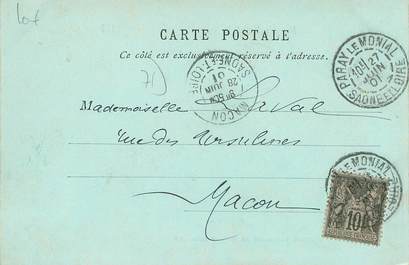 Lot
CARTE POSTALE
Ce côté est exclusivement réservé à l'adresse.
71
PARAY LE MONIAL
27
JUIN
01
SAONE ET LOIRE
MACON
28
JUIN
01
SAONE ET LOIRE
Mademoiselle Laval
rue des Ursulines
Macon
10